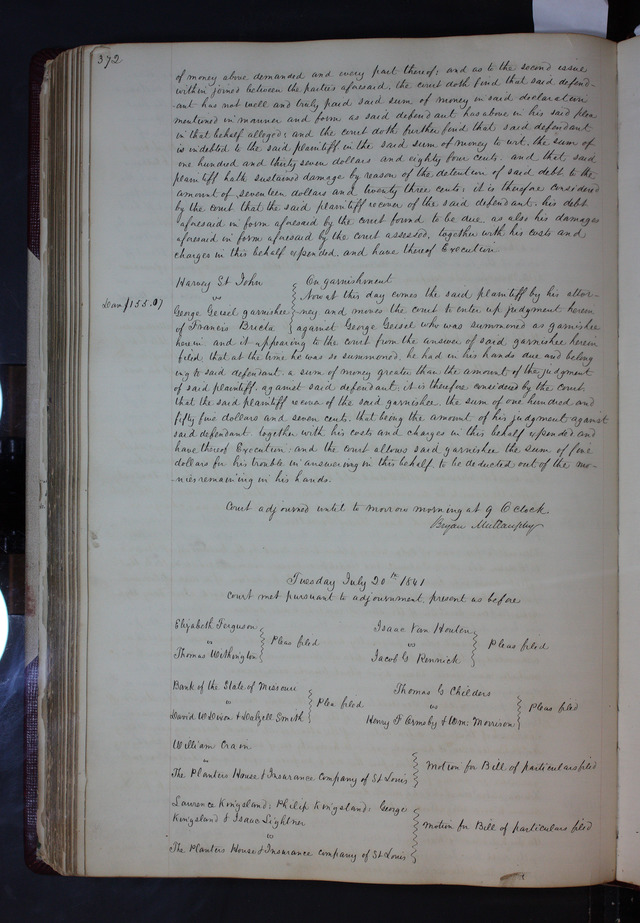 372
of money above demanded and every part thereof; and as to the second issue
within joined between the parties aforesaid, the court doth find that said defend-
ant has not well and truly paid said sum of money in said declaration
mentioned in manner and form as said defendant has above in his said plea
in that behalf alleged; and the court doth further find that said defendant
is indebted to the said plaintiff in the said sum of money to wit, the sum of
one hundred and thirty seven dollars and eighty four cents, and that said
plaintiff hath sustained damage by reason of the detention of said debt to the
amount of seventeen dollars and twenty three cents; it is therefore considered
by the court that the said plaintiff recover of the said defendant, his debt
aforesaid in form aforesaid by the court found to be due, as also his damages
aforesaid in form aforesaid by the court assessed, together with his costs and
charges in this behalf expended, and have thereof Execution
Harvey St John
vs
George Geisel garnishee
of Francis Bricla
Dam $155.07
On garnishment
Now at this day comes the said plaintiff by his attor-
ney and moves the court to enter up judgment herein
against George Geisel who was summoned as garnishee
herein and it appearing to the court from the answer of said garnishee herein
filed that at the time he was so summoned, he had in his hands due and belong
ing to said defendant, a sum of money greater than the amount of the judgment
of said plaintiff, against said defendant, it is therefore considered by the court
that the said plaintiff recover of the said garnishee, the sum of one hundred and
fifty five dollars and seven cents, that being the amount of his judgment against
said defendant, together with his costs and charges in this behalf expended and
have thereof Execution, and the court allows said garnishee the sum of five
dollars for his trouble in answering in this behalf, to be deducted out of the mo-
nies remaining in his hands.
Court adjourned until to morrow morning at 9 O'clock.
Bryan Mullanphy
Tuesday July 20th 1841
Court met pursuant to adjournment, present as before
Elizabeth Ferguson
vs
Thomas Withington
Pleas filed
Isaac Van Houten
vs
Jacob G Rennick
Pleas filed
Bank of the State of Missouri
vs
David W Dixon & Dalzell Smith
Plea filed
Thomas G Childers
vs
Henry F Ormsby & Wm: Morrison
Pleas filed
William Cram
vs
The Planters House & Insurance Company of St Louis
Motion for Bill of particulars filed
Lawrence Kingsland, Philip Kingsland, George
Kingsland & Isaac Lightner
vs
The Planters House & Insurance Company of St Louis
Motion for Bill of particulars filed